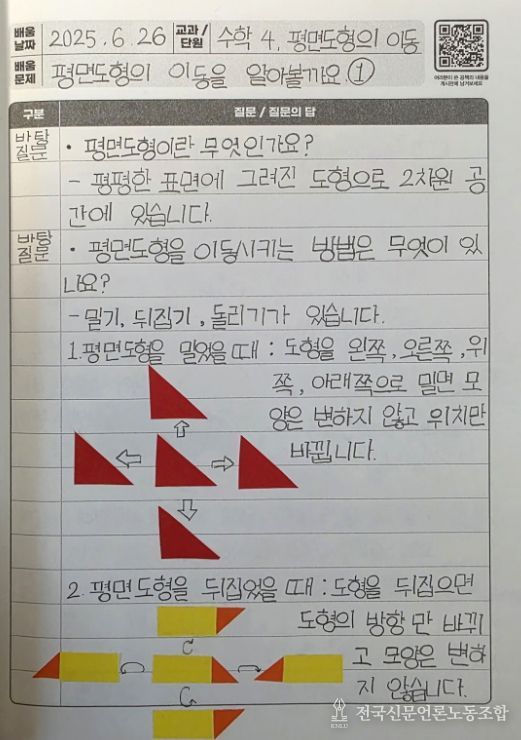 배움 날짜 2025. 6. 26 교과/단원 수학 4. 평면도형의 이동
배움 문제 평면도형의 이동을 알아볼까요 ①
여러분이 쓴 공책의 내용을
게시판에 남겨보세요
구분 질문 / 질문의 답
바탕 질문 • 평면도형이란 무엇인가요?
- 평평한 표면에 그려진 도형으로 2차원 공
간에 있습니다.
바탕 질문 • 평면도형을 이동시키는 방법은 무엇이 있
나요?
- 밀기, 뒤집기, 돌리기가 있습니다.
1. 평면도형을 밀었을 때 : 도형을 왼쪽, 오른쪽, 위
쪽, 아래쪽으로 밀면 모
양은 변하지 않고 위치만
바뀝니다.
2. 평면도형을 뒤집었을 때 : 도형을 뒤집으면
도형의 방향만 바뀌
고 모양은 변하
지 않습니다.
전국신문언론노동조합